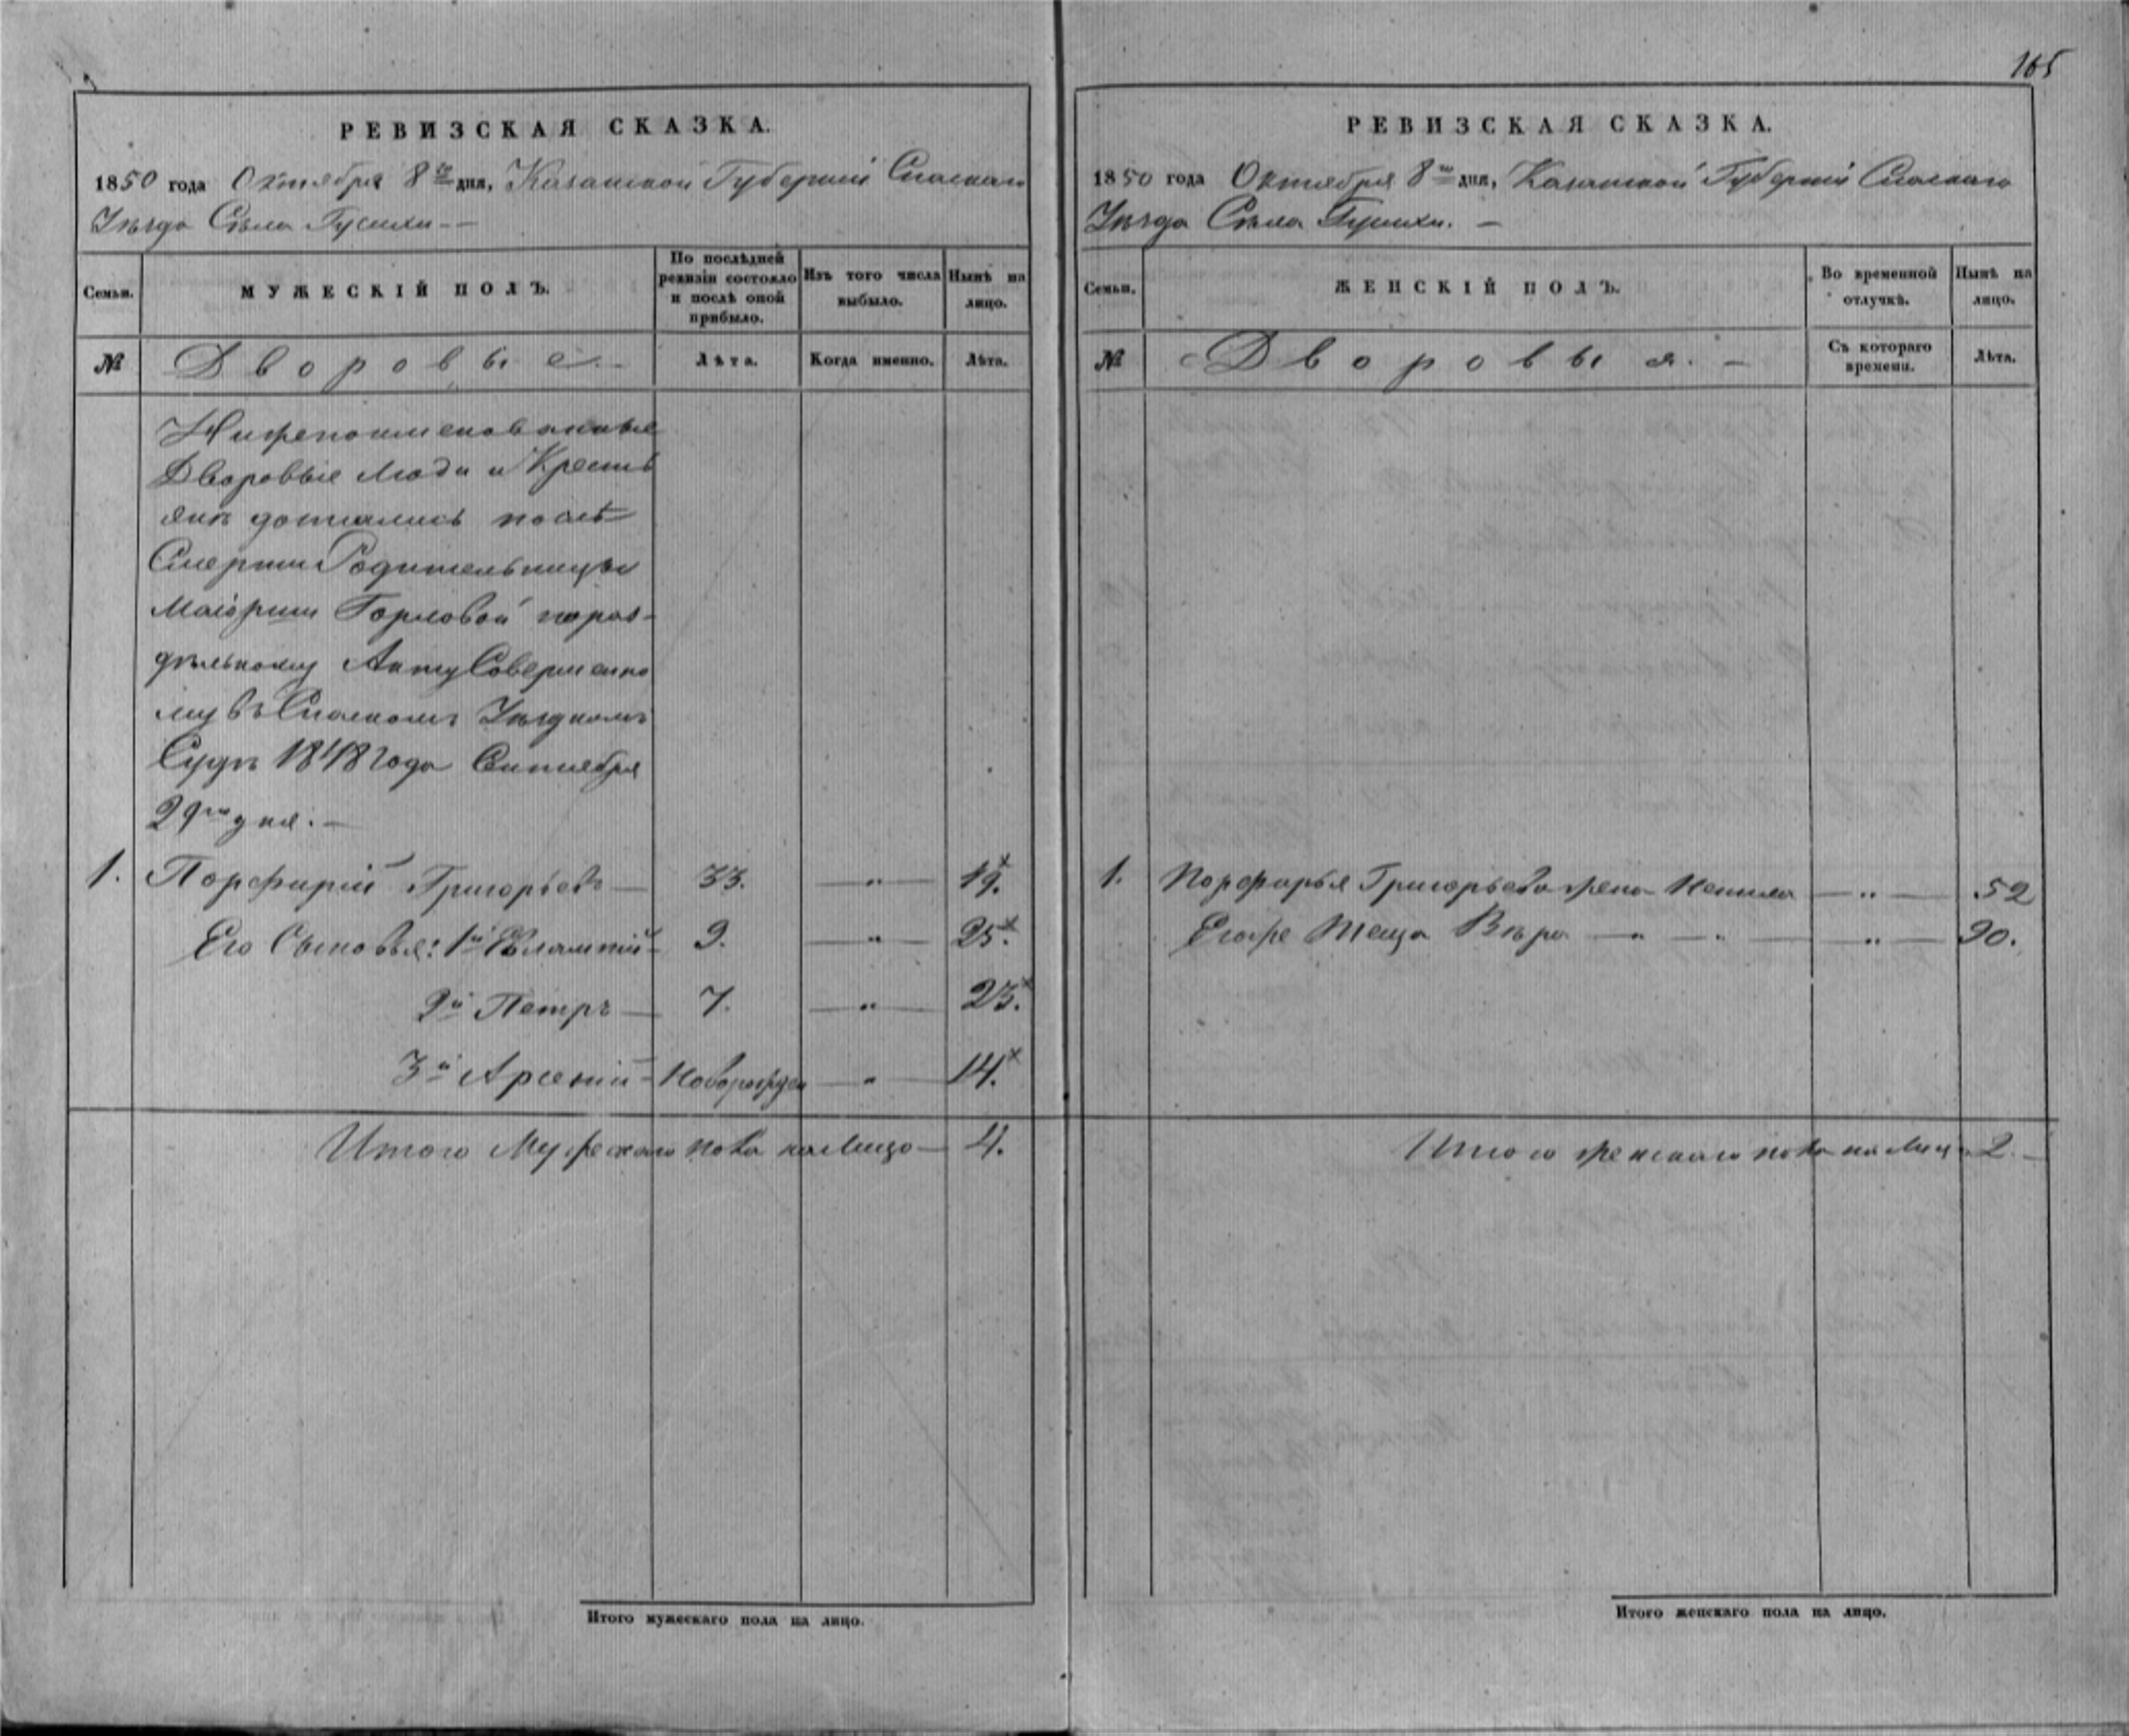 165
РЕВИЗСКАЯ СКАЗКА.
1850 года Октября 8го дня, Казанской Губерніи Спаскаго
Уѣзда Села Гусихи--
Семьи.
МУЖЕСКІЙ ПОЛЪ.
По послѣдней ревизіи состояло и послѣ оной прибыло.
Изъ того числа выбыло.
Нынѣ на лицо.
№
Дворовые.-
Лѣта.
Когда именно.
Лѣта.
Нижепоименованные
Дворовые Люди и Кресть
янѣ достались послѣ
Смерти Родительницы
Маіорши Горловой по раз-
дѣльному Акту Совершенно
му въ Спаскомъ Уѣздномъ
Судѣ 1848 Года Сентября
29го дня.-
1. Порфирій Григорьевъ — 33. — " — 49.x
Его Сыновья: 1й Евлампій - 9. — " — 25.x
2й Петръ — 7. — " — 23.x
3й Арсеній - Новорожден — " — 14.x
Итого Мужескаго пола на Лицо — 4.
Итого мужескаго пола на лицо.
РЕВИЗСКАЯ СКАЗКА.
1850 года Октября 8го дня, Казанской Губерніи Спаскаго
Уѣзда Села Гусихи. -
Семьи.
ЖЕНСКІЙ ПОЛЪ.
Во временной отлучкѣ.
Нынѣ на лицо.
№
Дворовыя. -
Съ котораго времени.
Лѣта.
1. Порфирья Григорьева жена Ненила — " — 52
Егоже Теща Вѣра — " — " — " — 90.
Итого женскаго пола на Лицо 2. -
Итого женскаго пола на лицо.